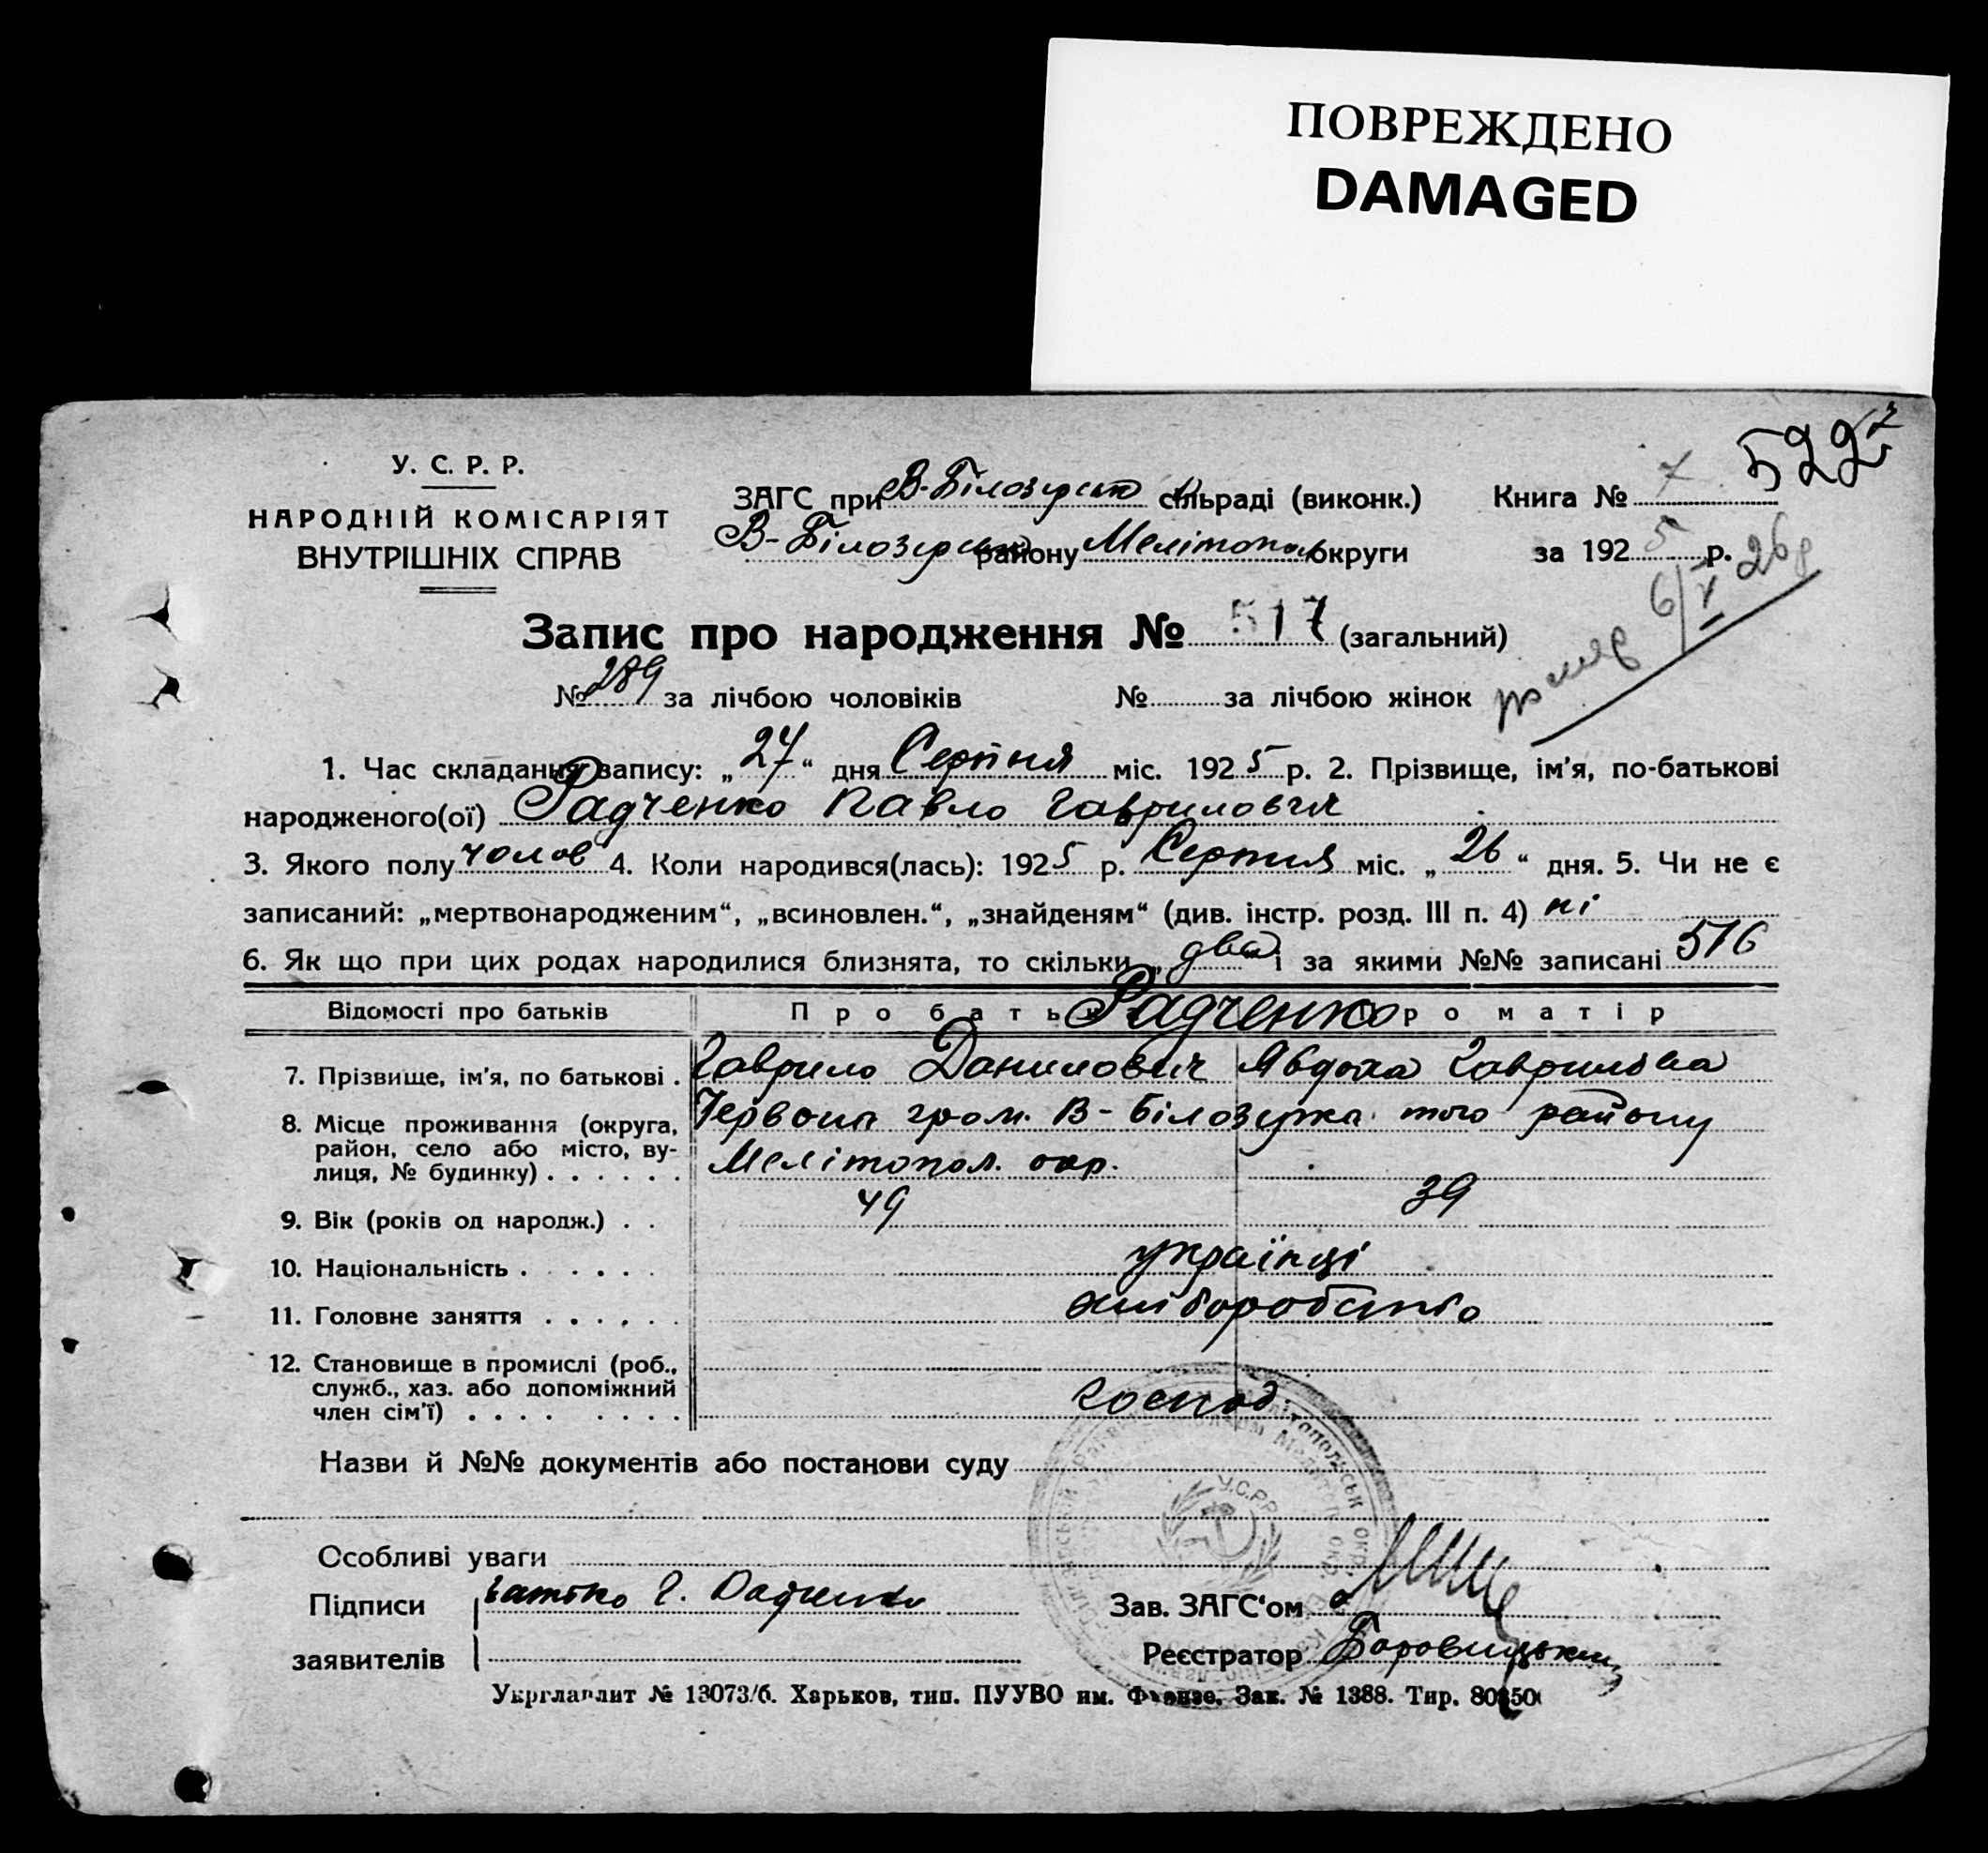 ПОВРЕЖДЕНО
DAMAGED
522
У. С. Р. Р.
НАРОДНІЙ КОМІСАРІЯТ
ВНУТРІШНІХ СПРАВ
ЗАГС при В-Білозерськ сільраді (виконк.) Книга № 7
В-Білозерськ району Мелітопол округи за 1925 р.
помер 6/V 26р
Запис про народження № 517 (загальний)
№ 289 за лічбою чоловіків № за лічбою жінок
1. Час складання запису: „27“ дня Серпня міс. 1925 р. 2. Прізвище, ім'я, по-батькові
народженого(ої) Радченко Павло Гаврилович
3. Якого полу чолов 4. Коли народився(лась): 1925 р. Серпня міс. „26“ дня. 5. Чи не є
записаний: „мертвонародженим“, „всиновлен.“, „знайденям“ (див. інстр. розд. III п. 4) ні
6. Як що при цих родах народилися близнята, то скільки „два“ і за якими №№ записані 516
Відомості про батьків Про батька Про матір
Радченко
7. Прізвище, ім'я, по батькові . Гаврило Данилович Явдоха Гаврилівна
8. Місце проживання (округа, район, село або місто, вулиця, № будинку) . . . . . . Червона гром. В-Білозерка того району
Мелітопол. окр.
9. Вік (років од народж.) . . 49 39
10. Національність . . . . . . українці
11. Головне заняття . . . . . . хліборобство
12. Становище в промислі (роб., служб., хаз. або допоміжний член сім'ї) . . . . . . . . господ.
Назви й №№ документів або постанови суду
У.С.Р.Р.
Особливі уваги
Підписи батько Г. Радченко Зав. ЗАГС'ом
заявителів Реєстратор Боровицький
Укрглавлит № 13073/б. Харьков, тип. ПУУВО им. Фрунзе. Зак. № 1388. Тир.